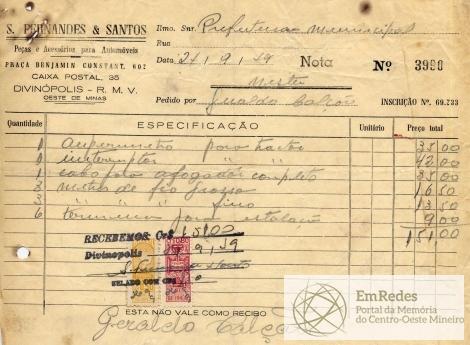 S. FERNANDES & SANTOS
Peças e Acessórios para Automóveis
PRAÇA BENJAMIN CONSTANT, 602
CAIXA POSTAL, 35
DIVINÓPOLIS - R. M. V.
OESTE DE MINAS
Ilmo. Snr. Prefeitura Municipal
Rua
Data 21/9/49 Nota Nº 3990
Nesta
Pedido por Geraldo Calção INSCRIÇÃO Nº. 69.733
Quantidade ESPECIFICAÇÃO Unitário Preço total
1 amperimetro para trator 35,00
1 interruptor " " 42,00
1 cabo para afogador completo 35,00
3 metros de fio grosso 16,50
3 " " fino 13,50
6 para 9,00
151,00
RECEBEMOS: Cr$ 151,00
Divinopolis 9/49
SELADO COM CR$
ESTA NÃO VALE COMO RECIBO
Geraldo Calção
EmRedes
Portal da Memória
do Centro-Oeste Mineiro